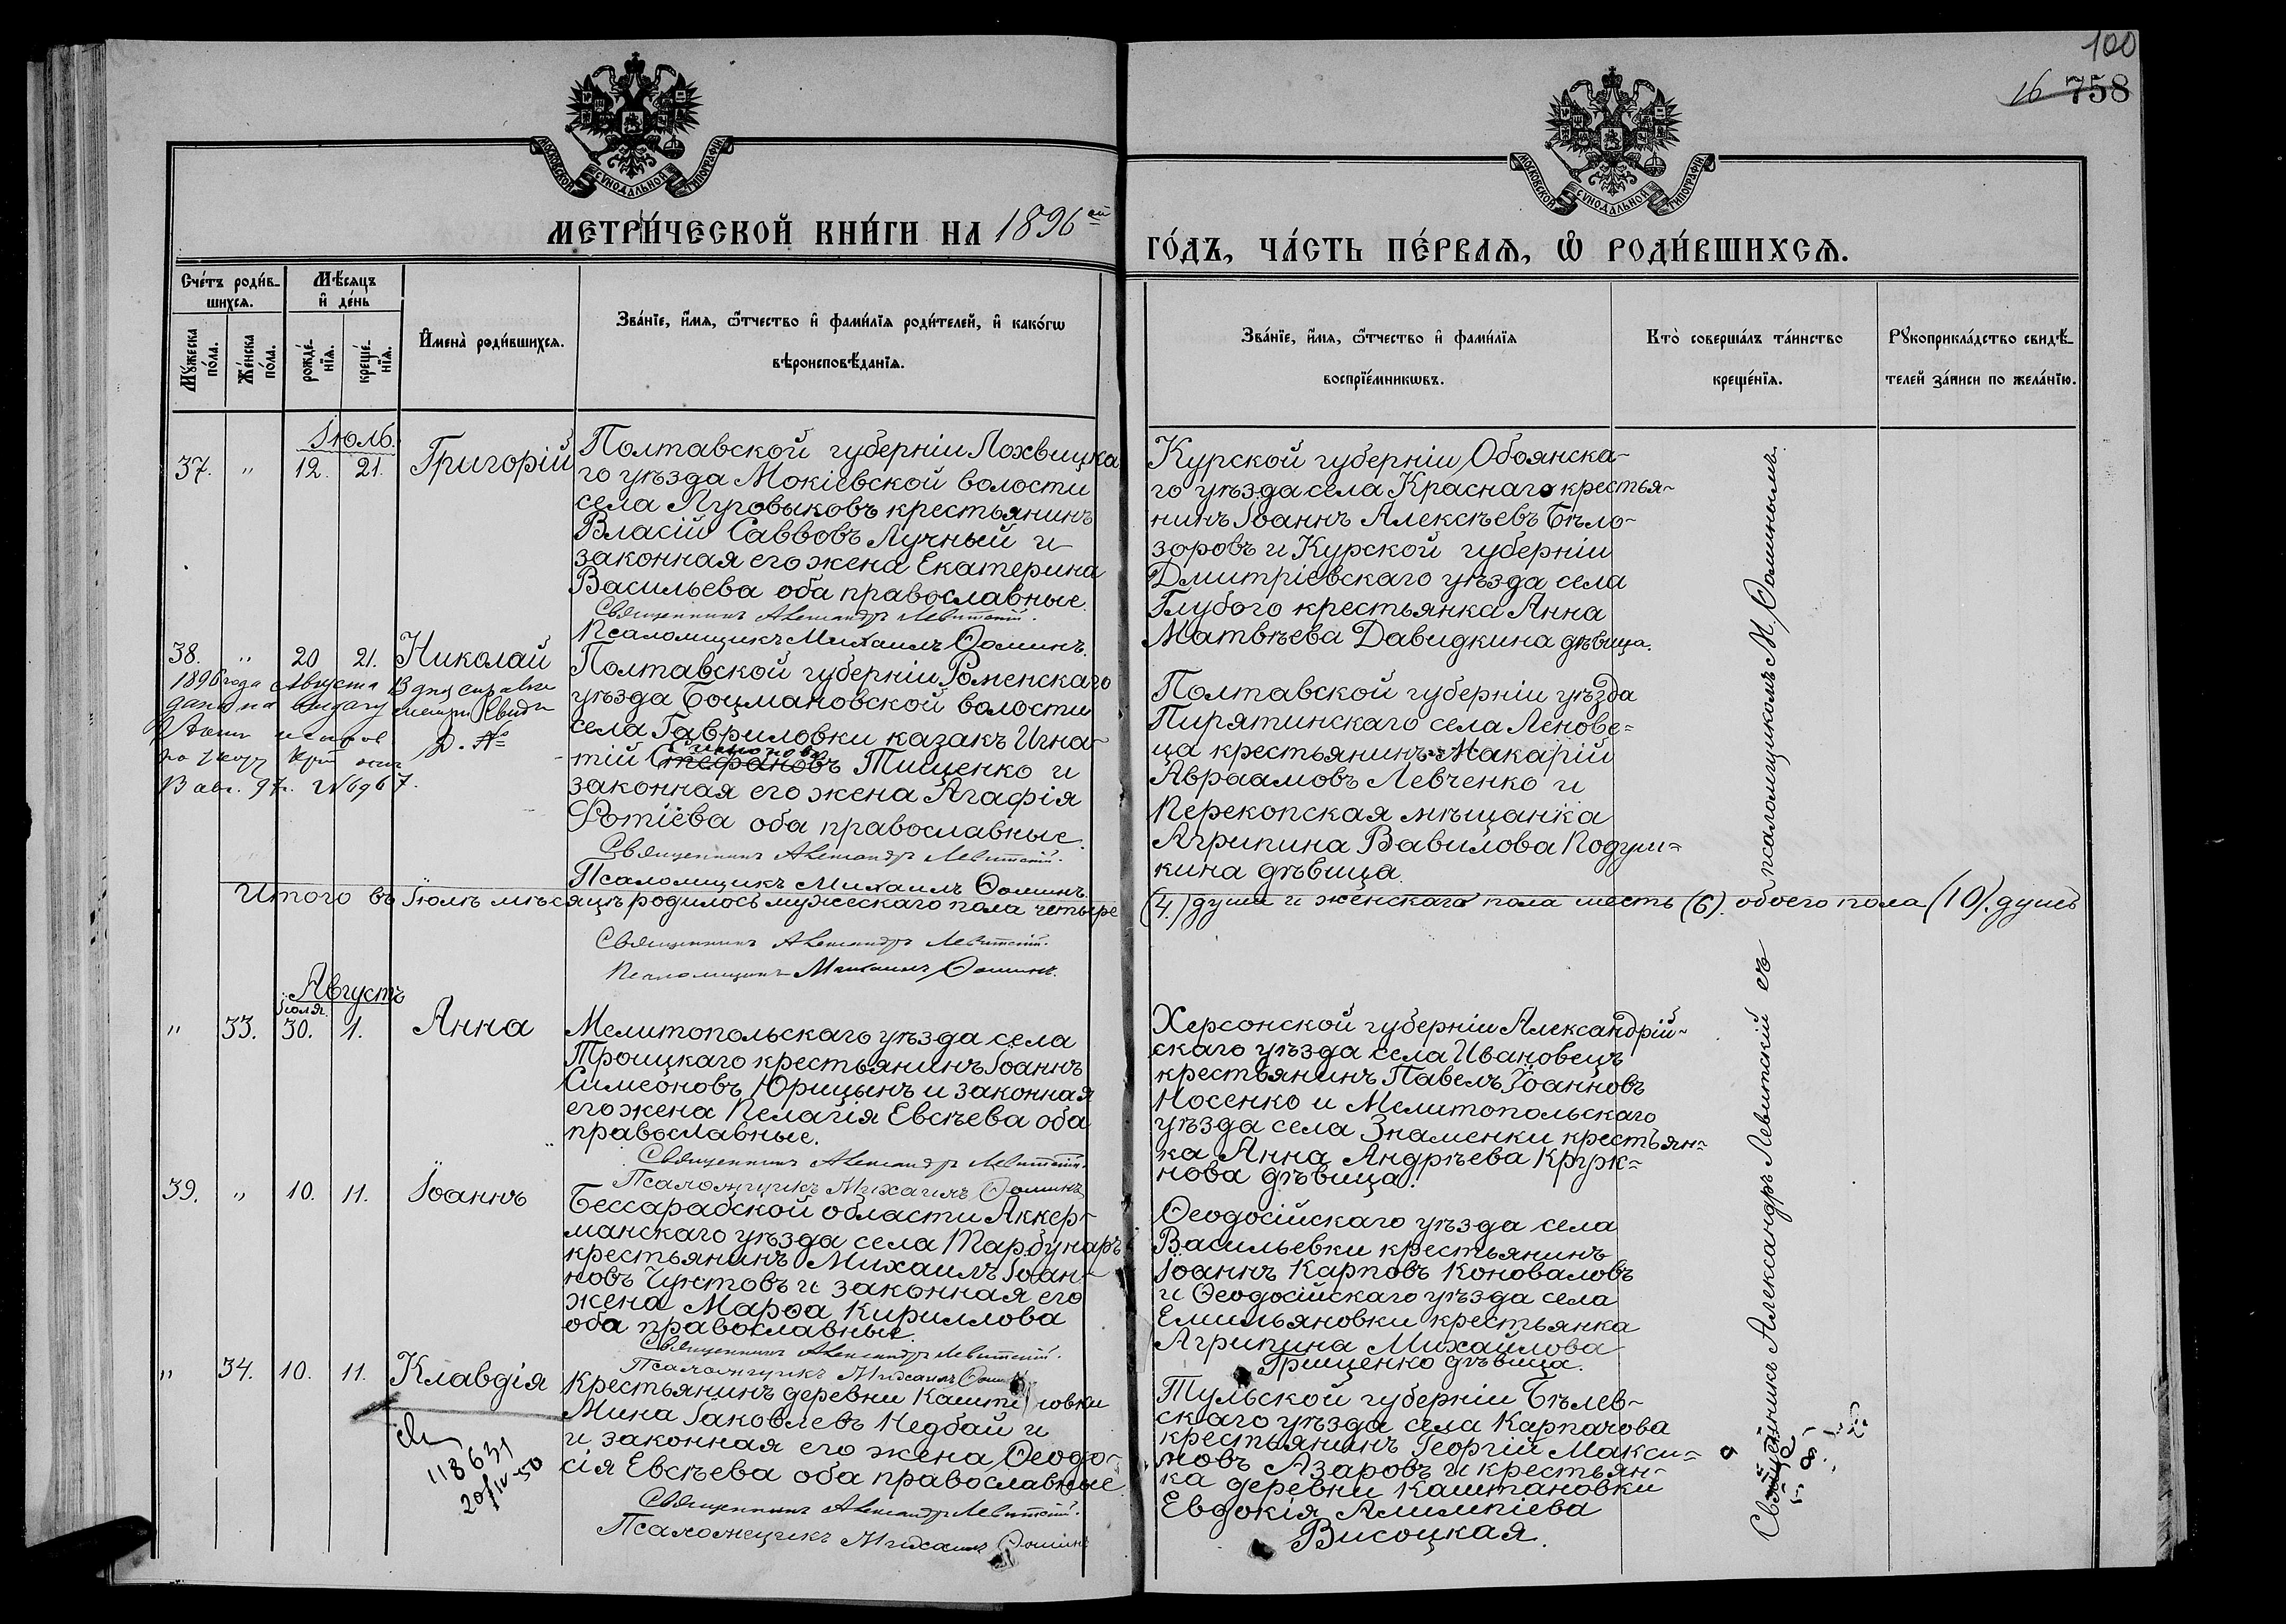 100
16 758
МОСКОВСКОЙ СУНОДАЛЬНОЙ ТИПОГРАФІИ
МОСКОВСКОЙ СУНОДАЛЬНОЙ ТИПОГРАФІИ
МЕТРИ́ЧЕСКОЙ КНИ́ГИ НА 1896 ей
ГО́ДЪ, ЧА́СТЬ ПЕ́РВАѦ, Ѡ҆ РОДИ́ВШИХСѦ.
Сче́тъ роди́в-
шихсѧ.
Мѣ́сѧцъ
и҆ де́нь
Мꙋ́жеска по́ла.
Же́нска по́ла.
рожде́-
нїѧ.
креще́-
нїѧ.
И҆мена̀ роди́вшихсѧ.
Зва́нїе, и҆́мѧ, ѻ҆́тчество и҆ фами́лїѧ роди́телей, и҆ како́гѡ
вѣроисповѣ́данїѧ.
Зва́нїе, и҆́мѧ, ѻ҆́тчество и҆ фами́лїѧ
воспрїе́мникѡвъ.
Кто̀ соверша́лъ та́инство
креще́нїѧ.
Рꙋкоприкла́дство свидѣ́-
телей за́писи по жела́нїю.
Іюль.
37. " 12. 21. Григорій
Полтавской губерніи Лохвицка
го уѣзда Мокіевской волости
села Пуровыковъ крестьянинъ
Власій Саввовъ Лучный и
законная его жена Екатерина
Васильева оба православные.
Священникъ Александръ Левитскій.
Псаломщикъ Михаилъ Ѳоминъ.
Курской губерніи Обоянска-
го уѣзда села Краснаго крестья-
нинъ Іоаннъ Алексѣевъ Бѣло-
зоровъ и Курской губерніи
Дмитріевскаго уѣзда села
Глубого крестьянка Анна
Матвѣева Давидкина дѣвица.
38. " 20 21. Николай
1896 года Августа 13 дня
дана на
В авг. 97г. №6967.
Полтавской губерніи Роменскаго
уѣзда Боцмановской волости
села Гавриловки казакъ Игна-
Симоновъ
тій Стефановъ Тищенко и
законная его жена Агафія
Фотіева оба православные.
Священникъ Александръ Левитскій.
Псаломщикъ Михаилъ Ѳоминъ.
Полтавской губерніи уѣзда
Пирятинскаго села Ленове=
ца крестьянинъ Макарій
Авраамовъ Левченко и
Перекопская мѣщанка
Агрипина Вавилова Подуш=
кина дѣвица.
Итого въ Іюлѣ мѣсяцѣ родилось мужескаго пола четыре (4.) души и женскаго пола шесть (6). обоего пола (10). душъ
Священникъ Александръ Левитскій.
Псаломщикъ Михаилъ Ѳоминъ.
Августъ
Іюля.
" 33. 30. 1. Анна
Мелитопольскаго уѣзда села
Троицкаго крестьянинъ Іоаннъ
Симеоновъ Юрицынъ и законная
его жена Пелагія Евсѣева оба
православные.
Священникъ Александръ Левитскій.
Псаломщикъ Михаилъ Ѳоминъ
Херсонской губерніи Александрій-
скаго уѣзда села Ивановецъ
крестьянинъ Павелъ Іоанновъ
Носенко и Мелитопольскаго
уѣзда села Знаменки крестьян-
ка Анна Андрѣева Круж=
нова дѣвица.
39. " 10. 11. Іоаннъ
Бессарабской области Аккер-
манскаго уѣзда села Тарбунаръ
крестьянинъ Михаилъ Іоан-
новъ Чунтовъ и законная его
жена Марѳа Кириллова
оба православные.
Священникъ Александръ Левитскій.
Псаломщикъ Михаилъ
Ѳеодосійскаго уѣзда села
Васильевки крестьянинъ
Іоаннъ Карповъ Коноваловъ
и Ѳеодосійскаго уѣзда села
Емильяновки крестьянка
Агрипина Михайлова
Грищенко дѣвица.
" 34. 10. 11. Клавдія
118631
20/IV-50
Крестьянинъ деревни
Мина Іаковлевъ Недбай и
и законная его жена Ѳеодо-
сія Евсѣева оба православные.
Священникъ Александръ Левитскій.
Псаломщикъ Михаилъ Ѳоминъ
Тульской губерніи Бѣлев-
скаго уѣзда села Карпачова
крестьянинъ Георгій Макси=
мовъ Азаровъ и крестьян-
ка деревни Каштановки
Евдокія Алимпіева
Висоцкая.
Священникъ Александръ Левитскій съ псаломщикомъ М. Ѳоминымъ.